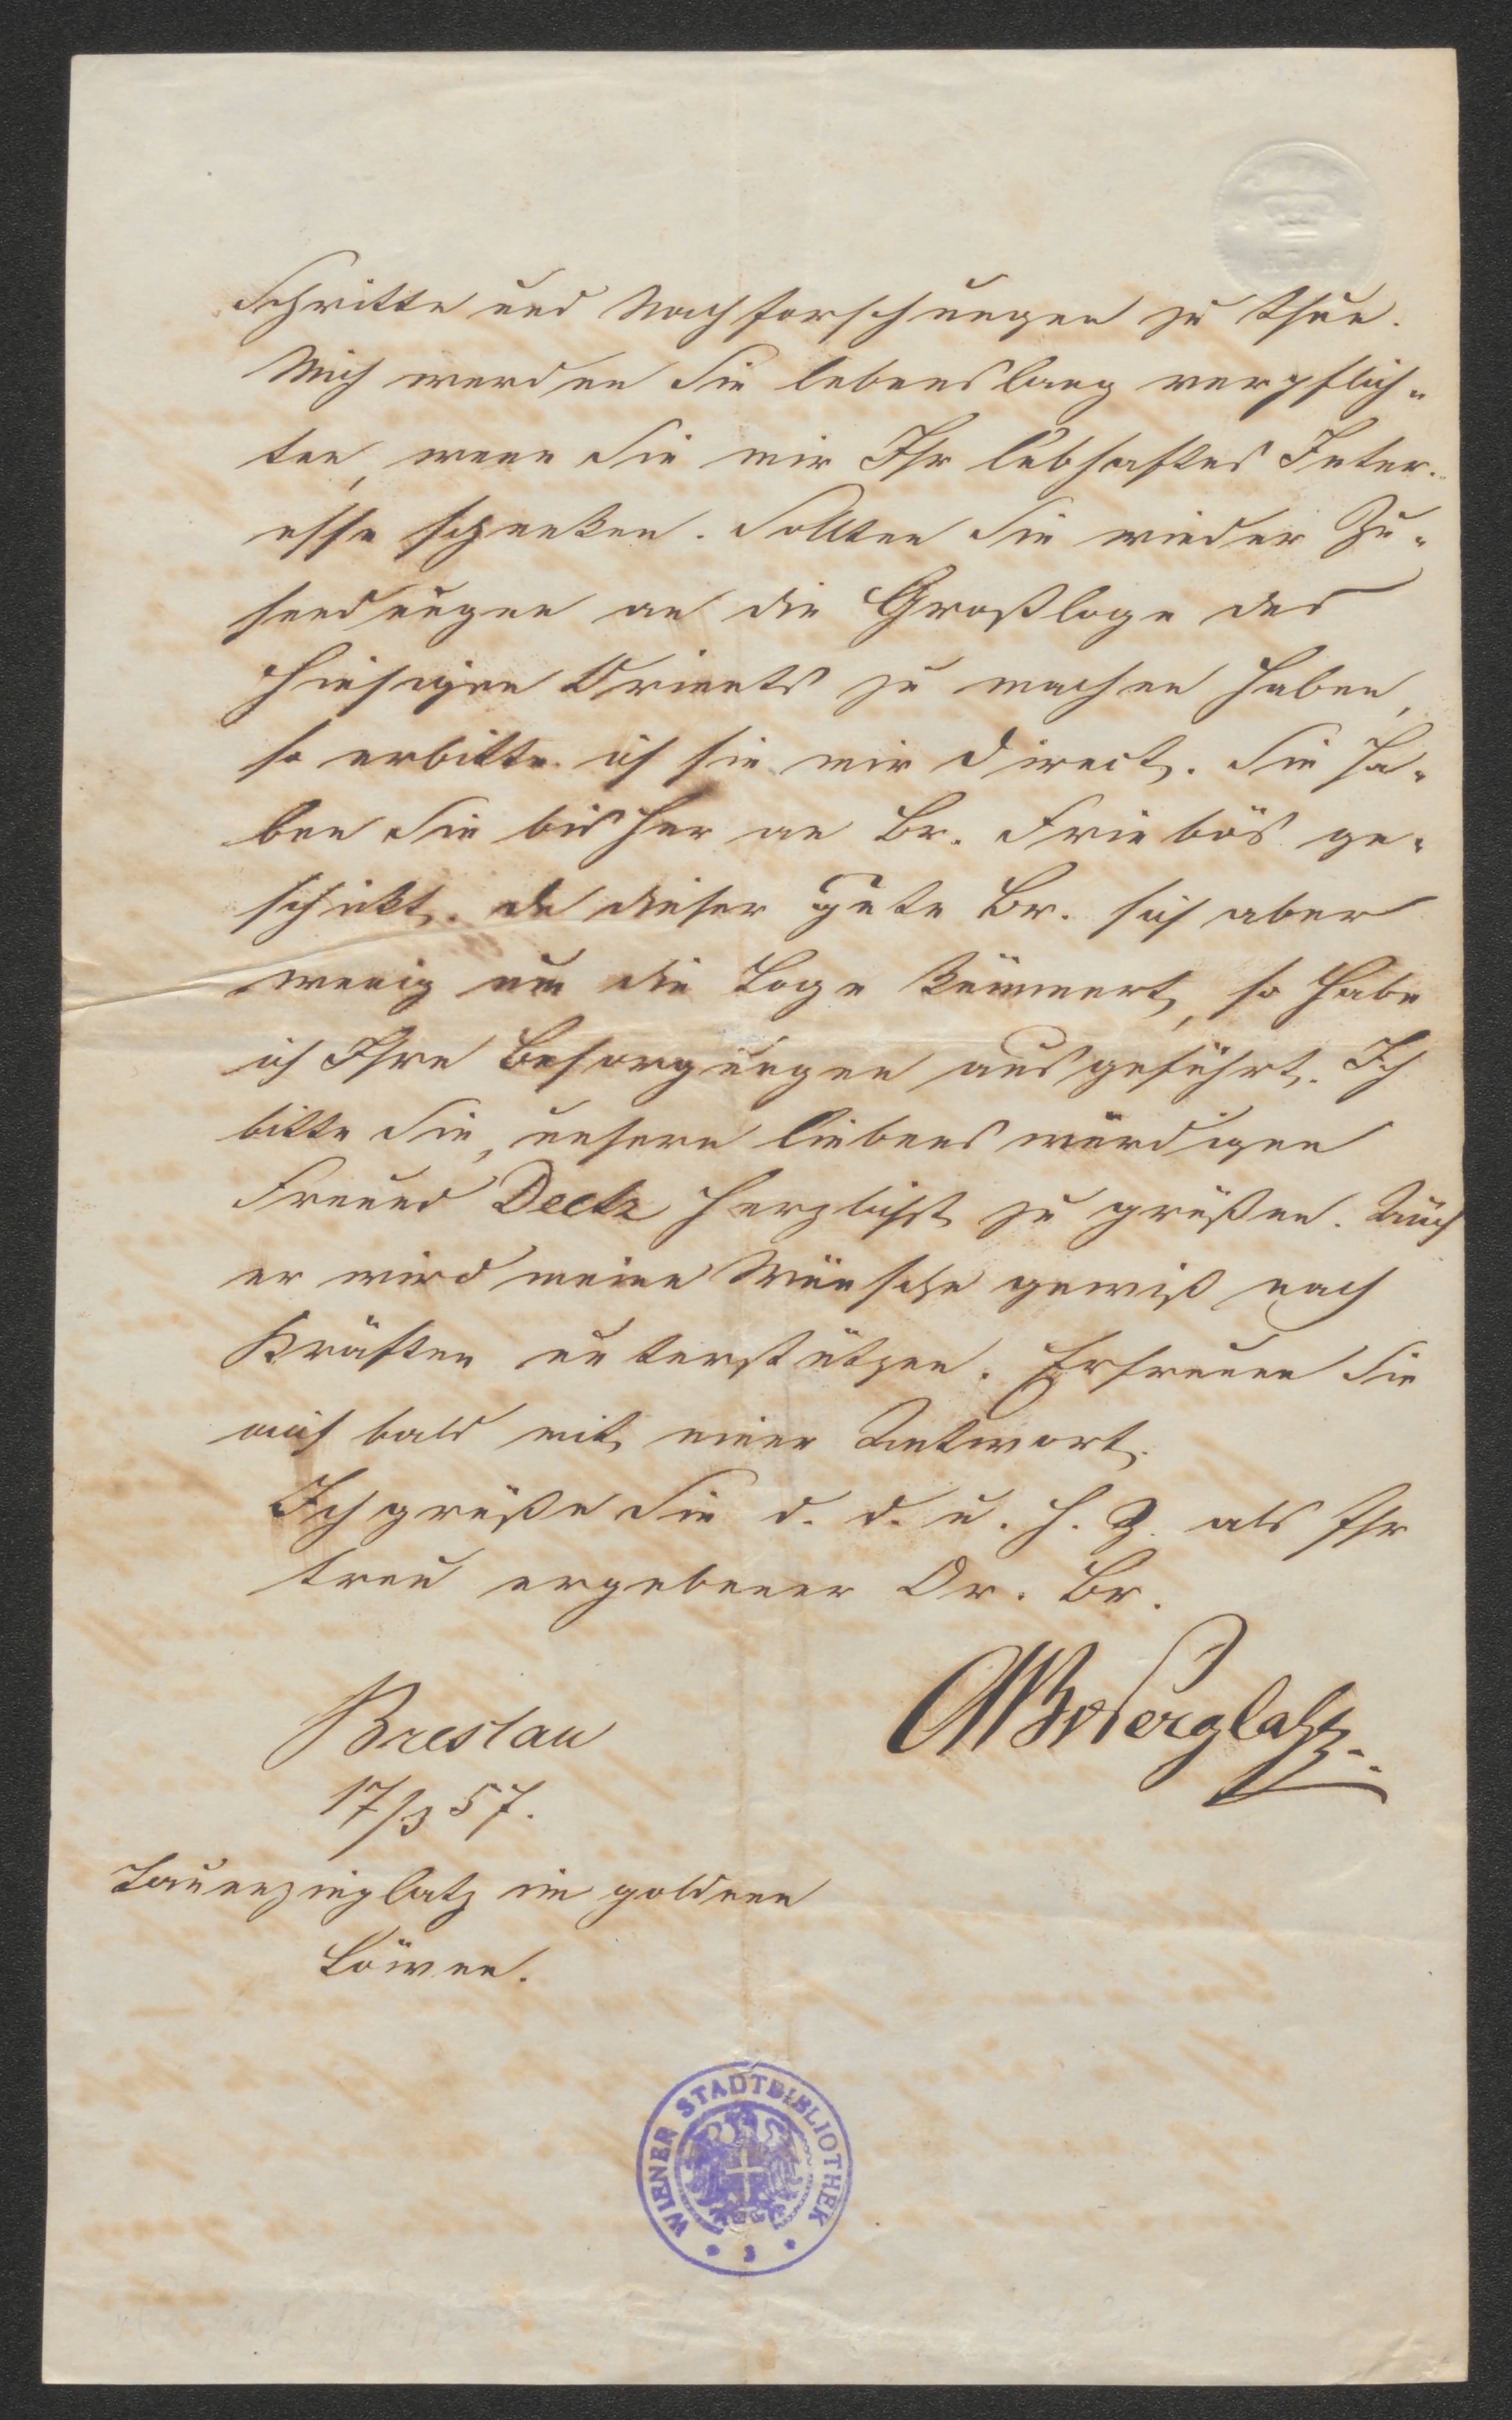 Schritte und Nachforschungen zu thun.
Mich werden Sie lebenslang verpflich-
ten, wenn Sie mir Ihr lebhaftes Inter-
esse schenken. Sollten Sie wieder Zu-
sendungen an die Großloge des
hiesigen Orients zu machen haben,
so erbitte ich sie mir direct. Sie ha-
ben Sie bisher an Br. Friebös ge-
schickt. da dieser gute Br. sich aber
wenig um die Loge kümmert, so habe
ich Ihre Besorgungen ausgeführt. Ich
bitte Sie, unsern liebenswürdigen
Freund Deetz herzlichst zu grüßen. Auch
er wird meine Wünsche gewiß nach
Kräften unterstützen. Erfreuen Sie
mich bald mit einer Antwort.
Ich grüße Sie d. d. u. h. Z. als Ihr
treu ergebener Or. Br.
Breslau
17/3 57.
Tauenzinplatz im goldnen
Löwen.
WIENER STADTBIBLIOTHEK